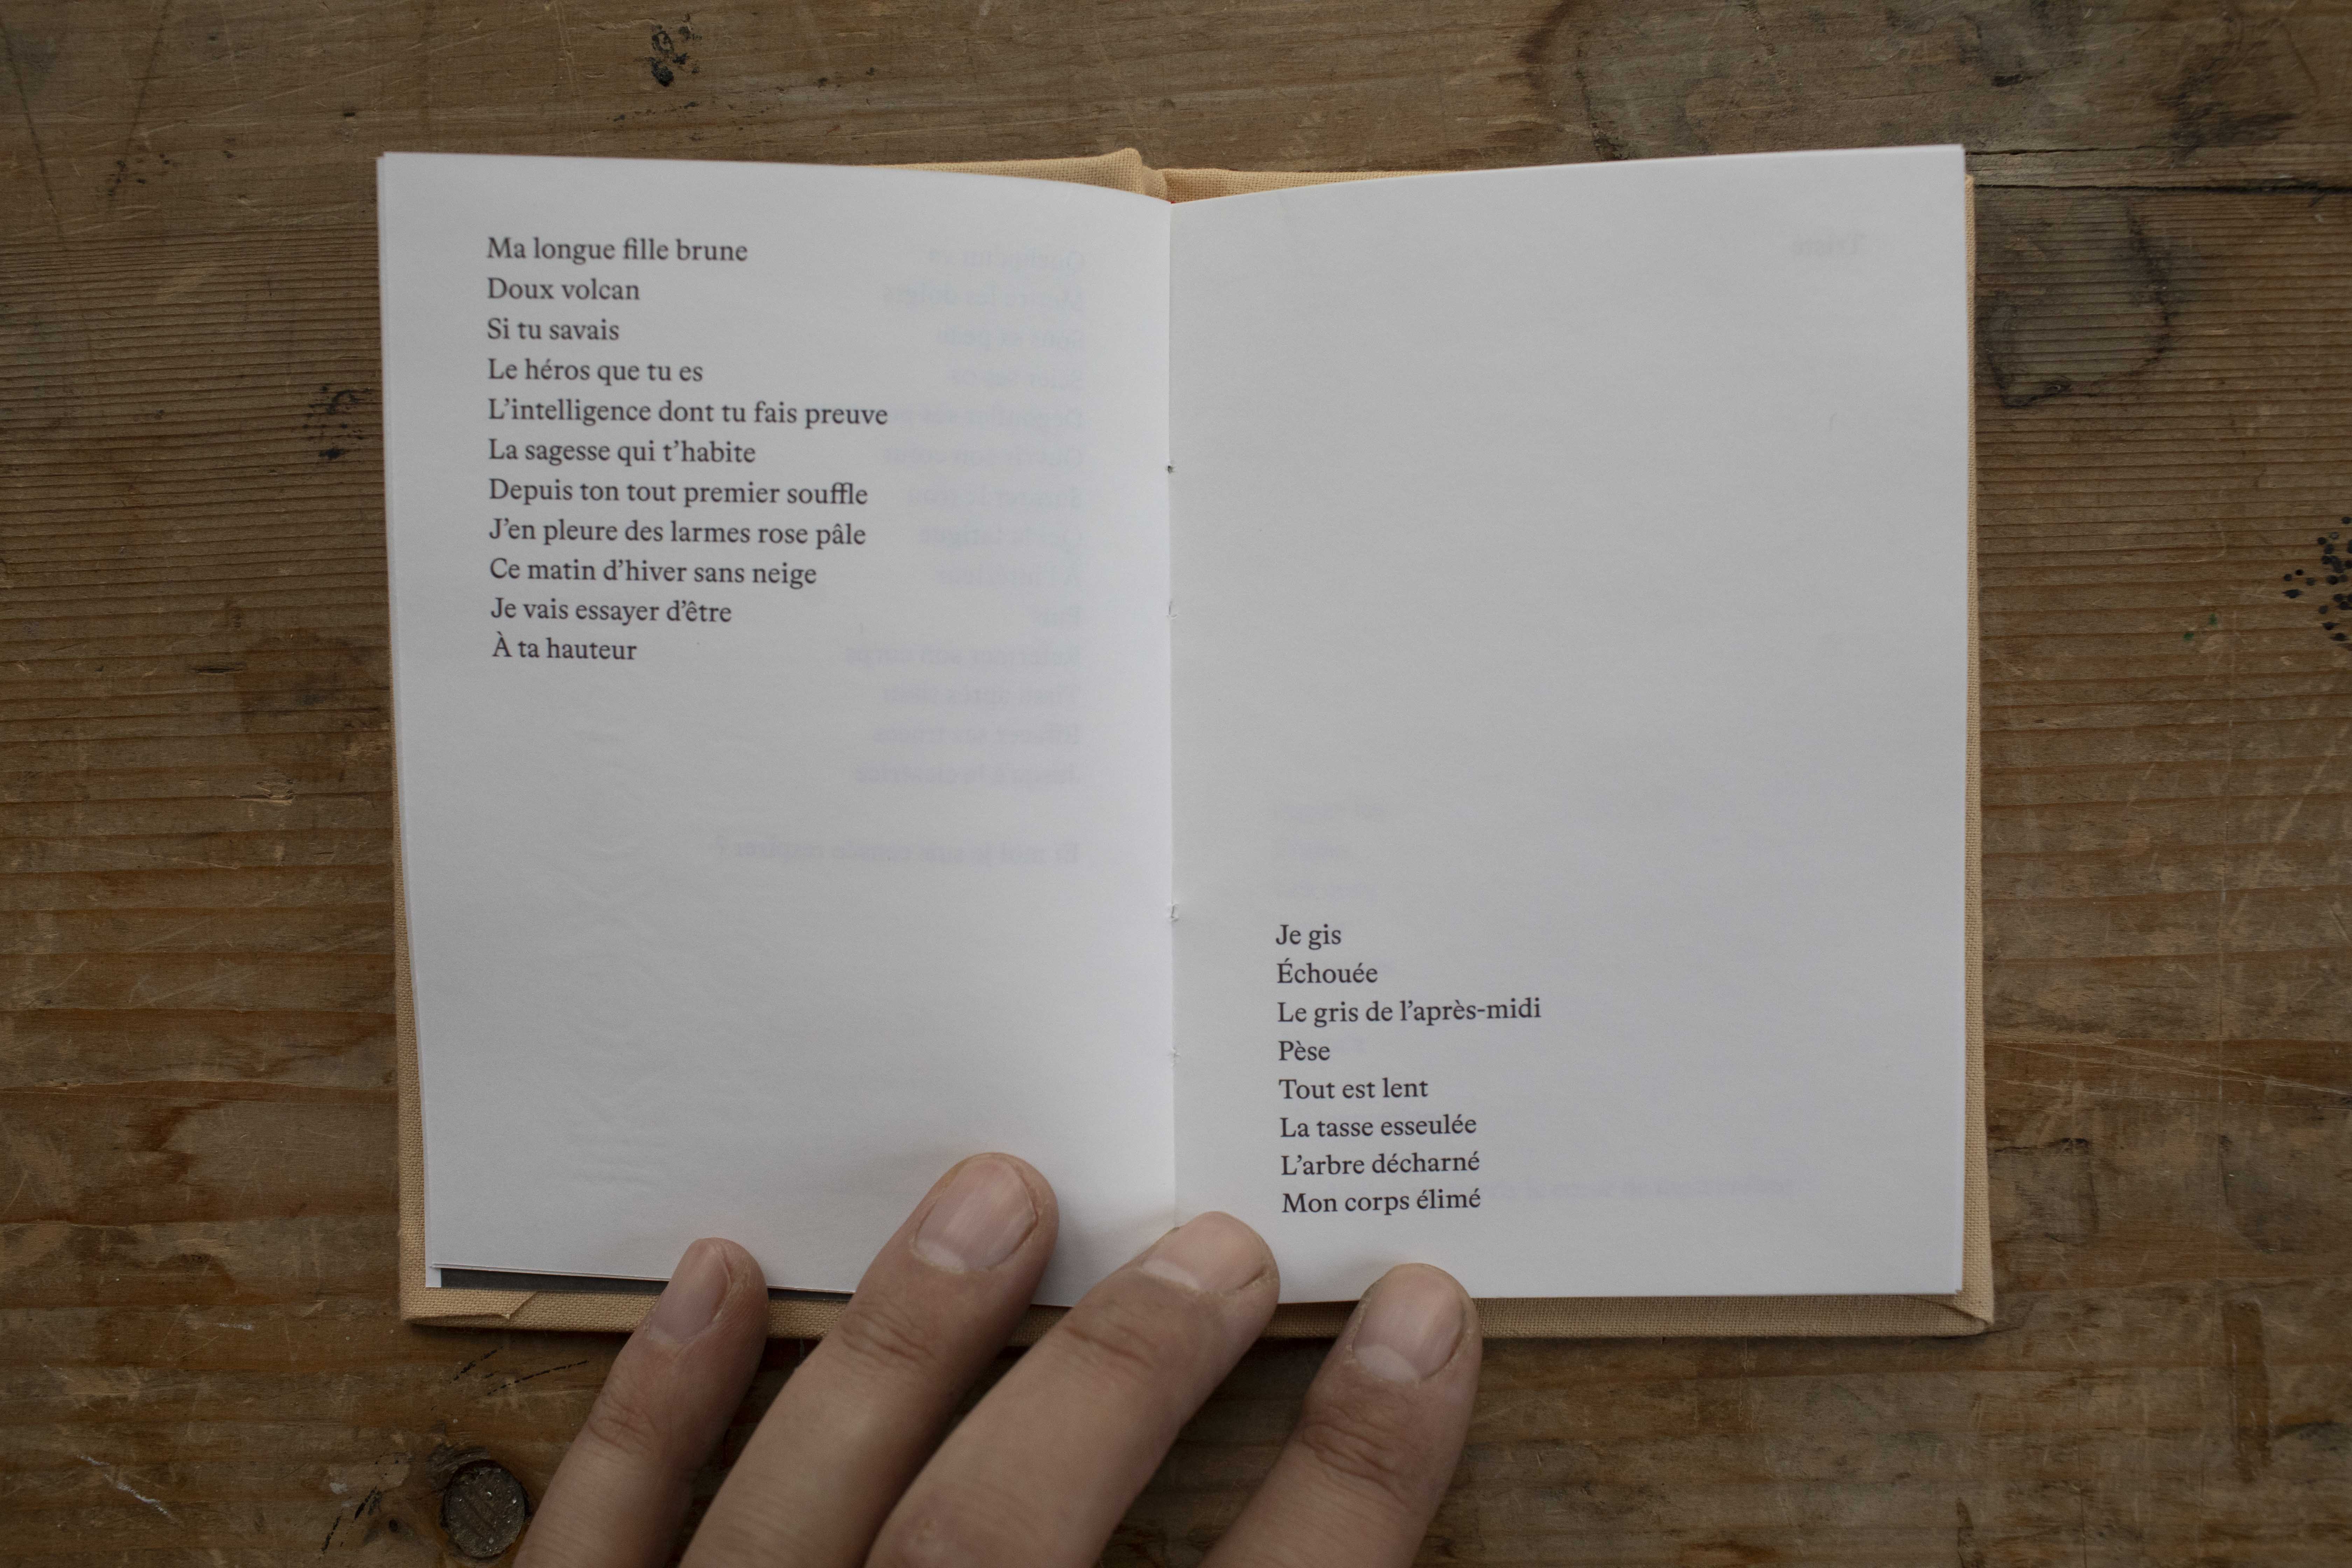 Ma longue fille brune
Doux volcan
Si tu savais
Le héros que tu es
L’intelligence dont tu fais preuve
La sagesse qui t’habite
Depuis ton tout premier souffle
J’en pleure des larmes rose pâle
Ce matin d’hiver sans neige
Je vais essayer d’être
À ta hauteur
Je gis
Échouée
Le gris de l’après-midi
Pèse
Tout est lent
La tasse esseulée
L’arbre décharné
Mon corps élimé